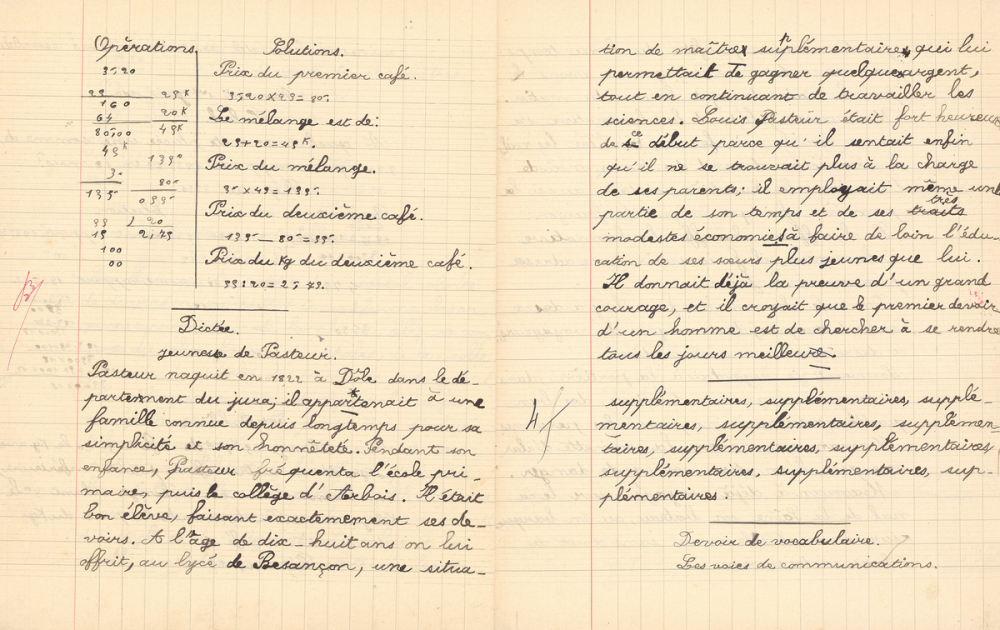 Opérations. Solutions.
Prix du premier café.
Le mélange est de:
29+20=49K.
Prix du mélange.
Prix du deuxième café.
Prix du Kg du deuxième café.
Dictée.
jeunesse de Pasteur.
Pasteur naquit en 1822 à Dôle dans le dé-
partement du jura; il appartenait à une
famille connue depuis longtemps pour sa
simplicité et son honnêteté. Pendant son
enfance, Pasteur fréquenta l'école pri
maire, puis le collège d'Arbois. Il était
bon élève, faisant exactement ses de-
voirs. A l'âge de dix-huit ans on lui
offrit, au lycé de Besançon, une situa-
tion de maître supplémentaire, qui lui
permettait de gagner quelque argent,
tout en continuant de travailler les
sciences. Louis Pasteur était fort heureux
de ce début parce qu'il sentait enfin
qu'il ne se trouvait plus à la charge
de ses parents; il employait même une
partie de son temps et de ses très
modestes économies à faire de loin l'édu-
cation de ses sœurs plus jeunes que lui.
Il donnait déjà la preuve d'un grand
courage, et il croyait que le premier devoir
d'un homme est de chercher à se rendre
tous les jours meilleure.
4
supplémentaires, supplémentaires, supplé-
mentaires, supplémentaires, supplémen-
taires, supplémentaires, supplémentaires
supplémentaires, supplémentaires, sup-
plémentaires
Devoir de vocabulaire.
Les voies de communications.